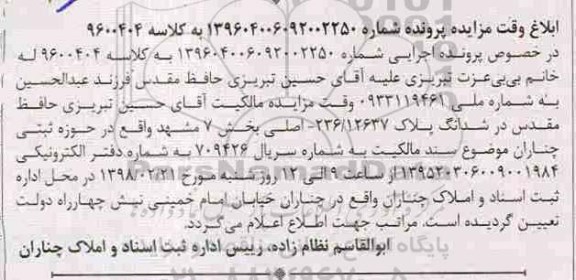 ابلاغ وقت مزایده پرونده شماره ۱۳۹۶۰۴۰۰۶۰۹۲۰۰۲۲۵۰ به کلاسه ۹۶۰۰۴۰۴
در خصوص پرونده اجرایی شماره ۱۳۹۶۰۴۰۰۶۰۹۲۰۰۲۲۵۰ به کلاسه ۹۶۰۰۴۰۴ له
خانم بی‌بی‌عزت تبریزی علیه آقای حسین تبریزی حافظ مقدس فرزند عبدالحسین
به شماره ملی ۰۹۳۳۱۱۹۴۶۱ وقت مزایده مالکیت آقای حسین تبریزی حافظ
مقدس در شدانگ پلاک ۲۳۶/۱۲۶۳۷- اصلی بخش ۷ مشهد واقع در حوزه ثبتی
چناران موضوع سند مالکیت به شماره سریال ۷۰۹۴۲۶ به شماره دفتر الکترونیکی
۱۳۹۵۲۰۳۰۶۰۰۹۰۰۱۹۸۴ از ساعت ۹ الی ۱۲ روز شنبه مورخ ۱۳۹۸/۰۲/۲۱ در محل اداره
ثبت اسناد و املاک چناران واقع در چناران خیابان امام خمینی نبش چهارراه دولت
تعیین گردیده است. مراتب جهت اطلاع اعلام می‌گردد.
ابوالقاسم نظام زاده، رییس اداره ثبت اسناد و املاک چناران